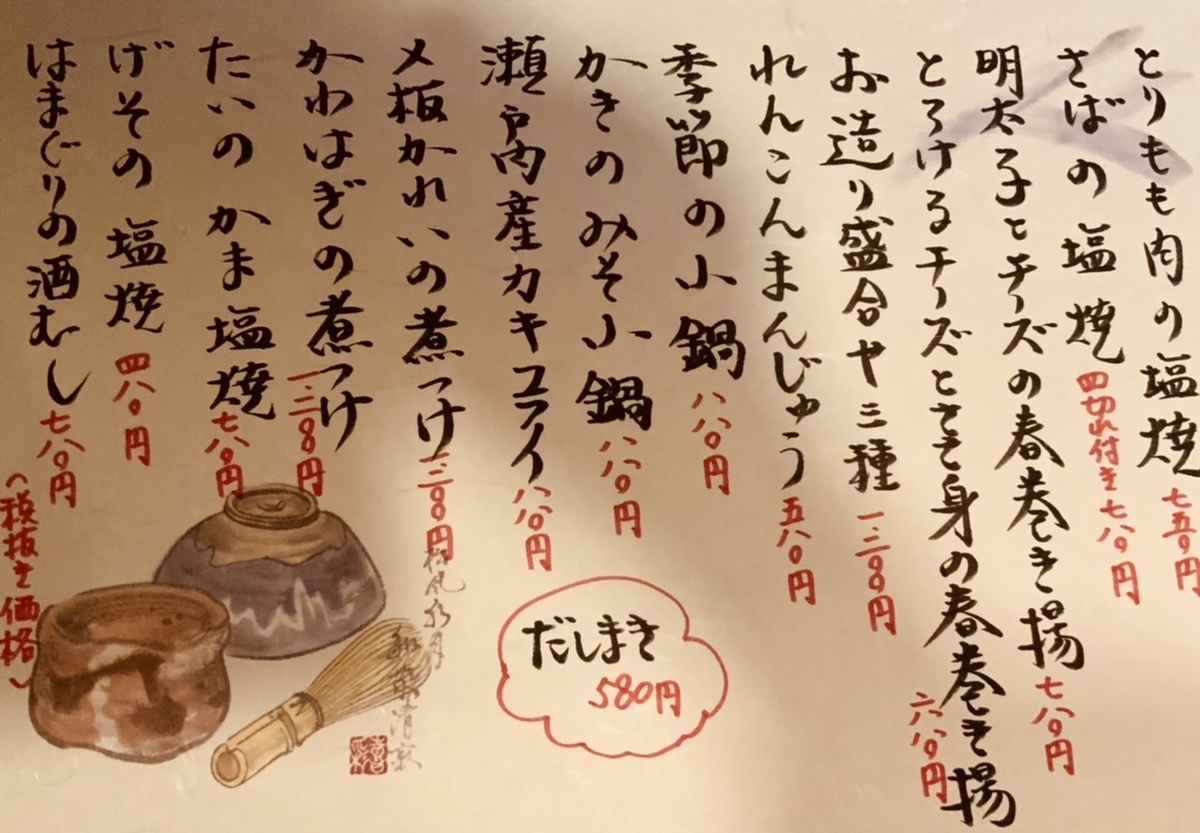 とりもも肉の塩焼 七五〇円
さばの塩焼 四切れ付き 七八〇円
明太子とチーズの春巻き揚 七八〇円
とろけるチーズとささ身の春巻き揚 六八〇円
お造り盛合や三種
れんこんまんじゅう 五八〇円
季節の小鍋 八八〇円
かきのみそ小鍋 八八〇円
瀬戸内産カキフライ 八八〇円
メ板かれいの煮つけ
かわはぎの煮つけ
たいのかま塩焼 七八〇円
げその塩焼 四八〇円
はまぐりの酒むし 七八〇円
(税抜き価格)
だしまき
580円
和敬清寂